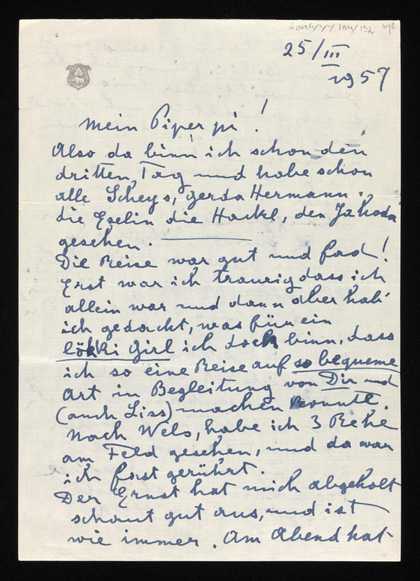 25/III
1957
mein Piperpi!
Also da binn ich schon den
dritten Tag und habe schon
alle Scheys, Gerda Hermann.
die Eselin die Hackl, den Jahoda
gesehen.
Die Reise war gut und fad!
Erst war ich traurig dass ich
allein war und dann aber hab'
ich gedacht, was für ein
lökki Girl ich doch binn, dass
ich so eine Reise auf so bequeme
Art in Begleitung von Dir und
(auch Liss) machen konnte.
Nach Wels, habe ich 3 Rehe
am Feld gesehen, und da war
ich fast gerührt.
Der Ernst hat mich abgeholt
schaut gut aus, und ist
wie immer. Am Abend hat